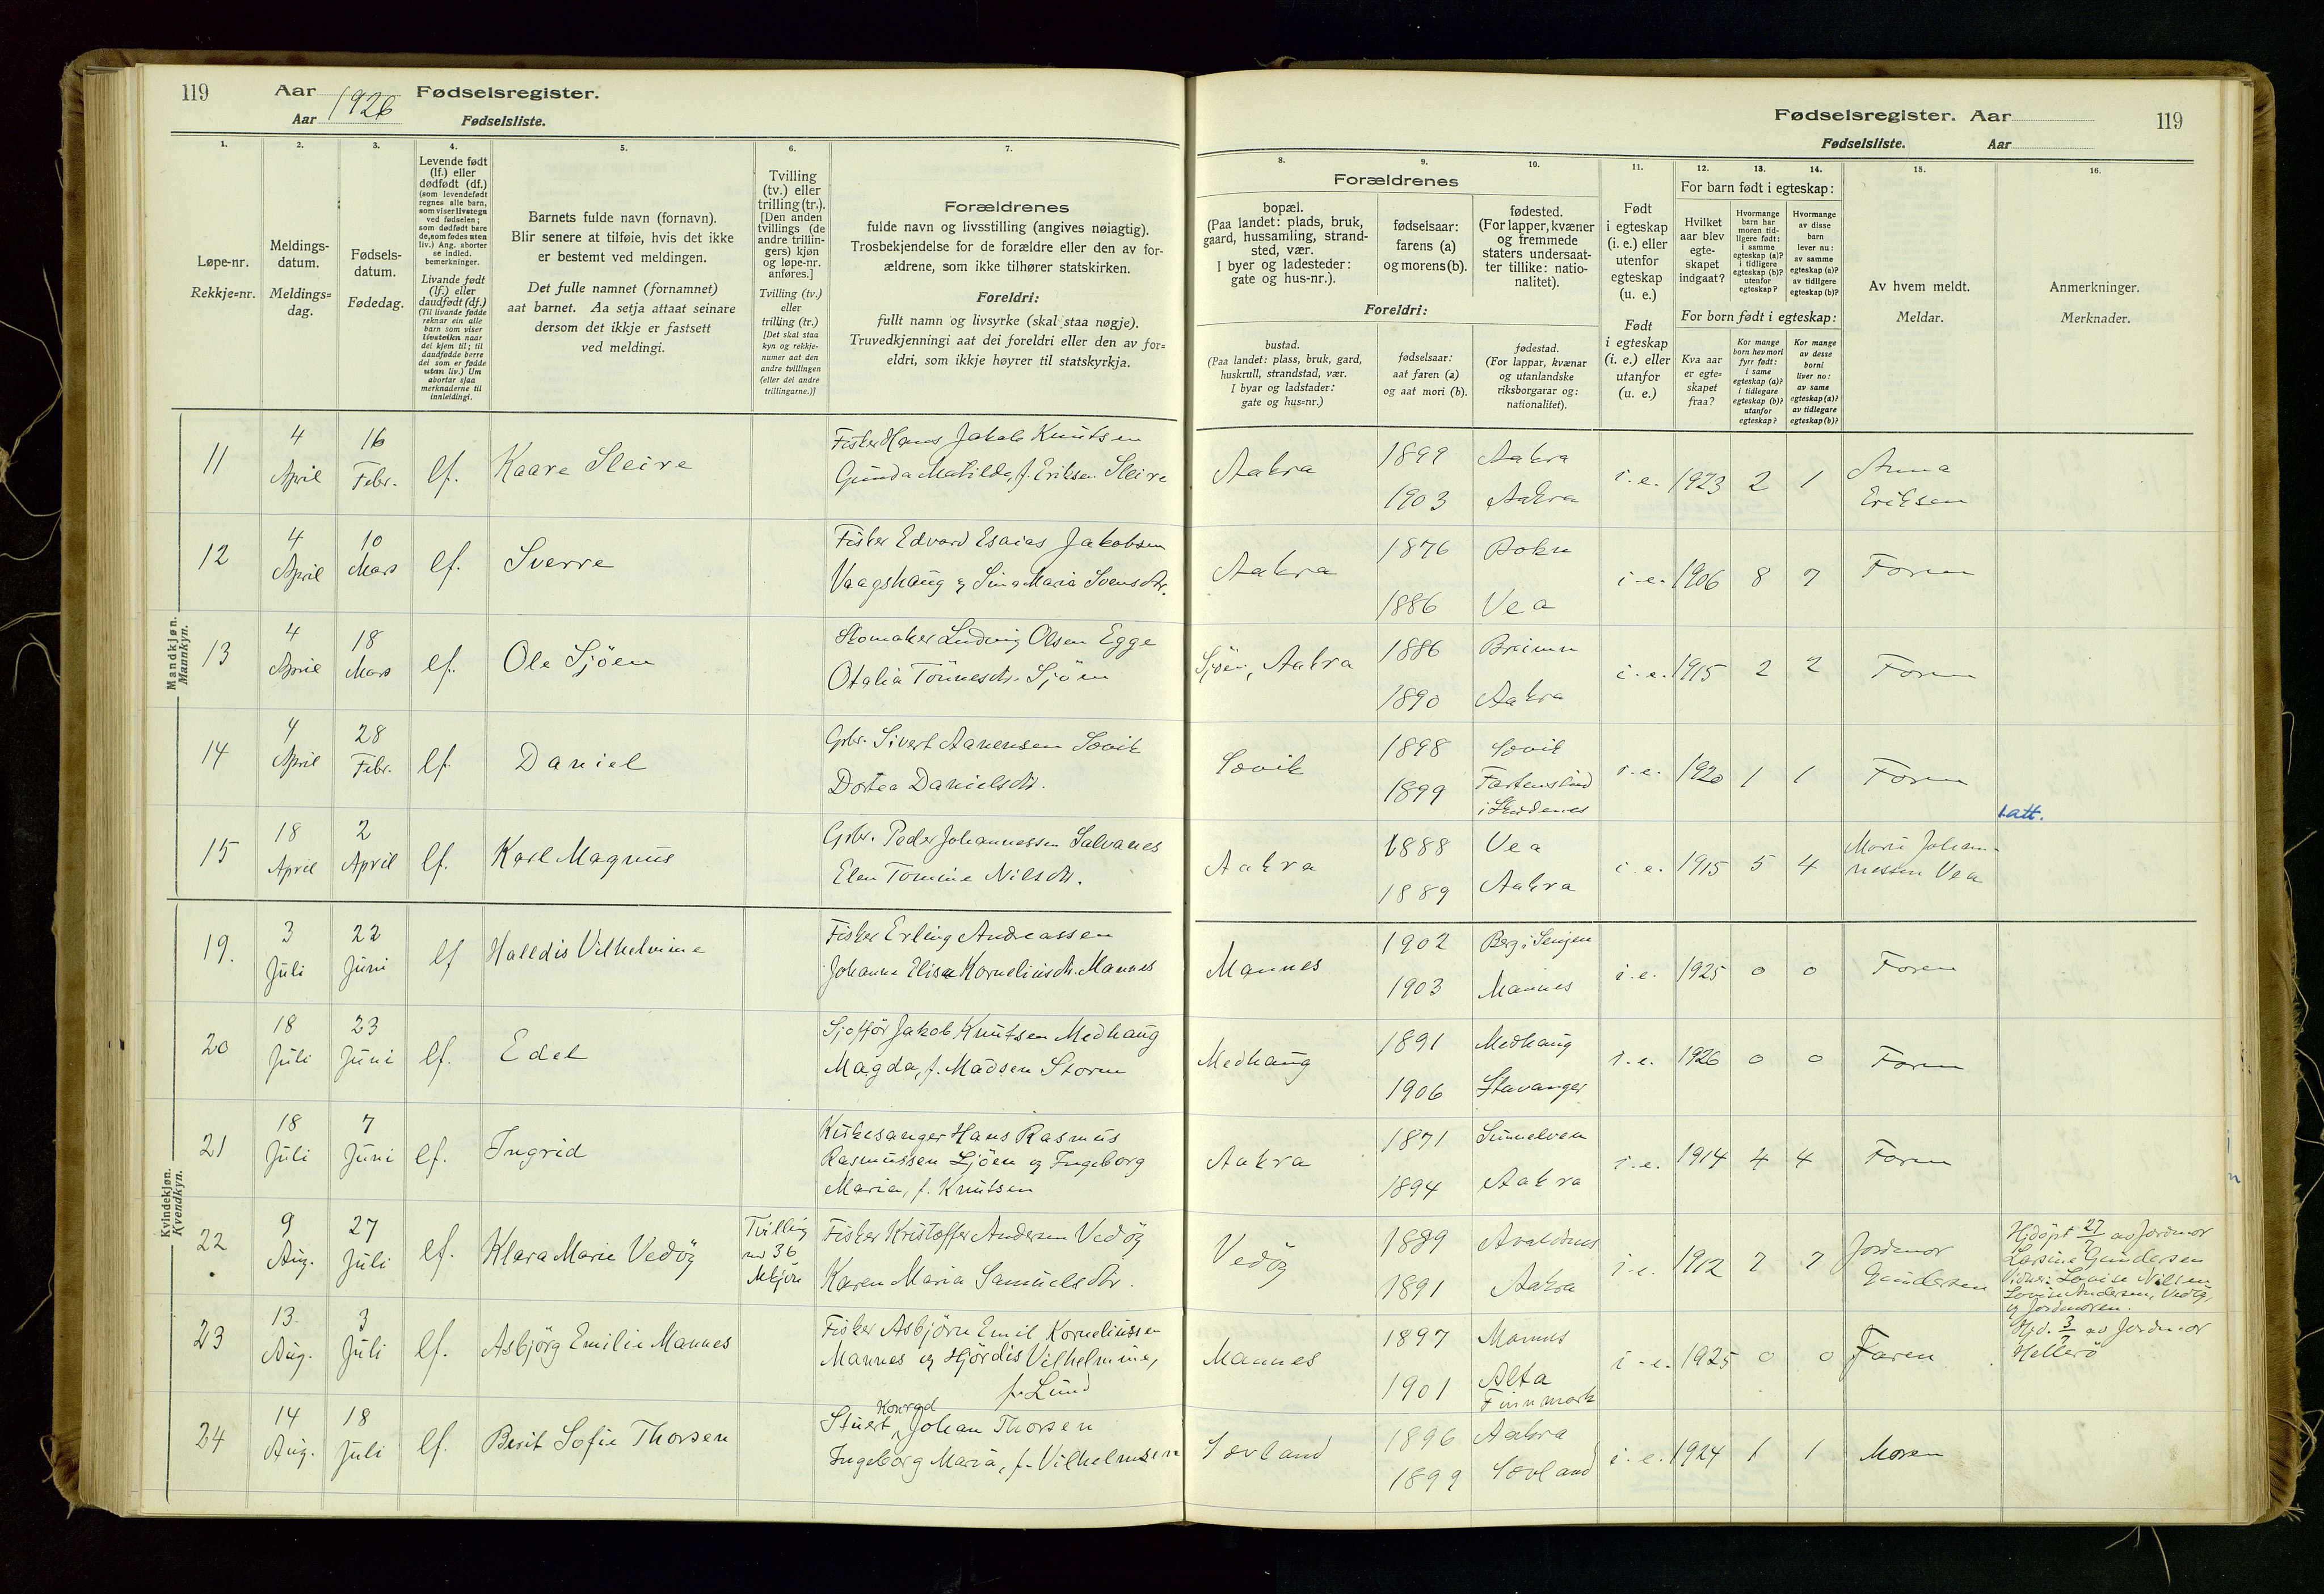 119
Aar 1926 Fødselsregister.
Aar Fødselsliste.
Fødselsregister. Aar
119
Fødselsliste. Aar
1.
Løpe-nr.
Rekkje=nr.
2.
Meldings-
datum.
Meldings=
dag.
3.
Fødsels-
datum.
Fødedag.
4.
Levende født
(lf.) eller
dødfødt (df.)
(som levendefødt
regnes alle barn,
som viser livstegn
ved fødselen;
som dødfødt bare
de, som fødes uten
liv.) Ang. aborter
se indled.
bemerkninger.
Livande født
(lf.) eller
daudfødt (df.)
(Til livande fødde
reknar ein alle
barn som viser
livsteikn naar
dei kjem til; til
daudfødde berre
dei som er fødde
utan liv.) Um
abortar sjaa
merknaderne til
innleidingi.
5.
Barnets fulde navn (fornavn).
Blir senere at tilføie, hvis det ikke
er bestemt ved meldingen.
Det fulle namnet (fornamnet)
aat barnet. Aa setja attaat seinare
dersom det ikkje er fastsett
ved meldingi.
6.
Tvilling
(tv.) eller
trilling (tr.).
[Den anden
tvillings (de
andre trillin-
gers) kjøn
og løpe-nr.
anføres.]
Tvilling (tv.)
eller
trilling (tr.)
[Det skal staa
kyn og rekkje-
numer aat den
andre tvillingen
(eller dei andre
trillingarne.)]
7.
Forældrenes
fulde navn og livsstilling (angives nøiagtig).
Trosbekjendelse for de forældre eller den av for-
ældrene, som ikke tilhører statskirken.
Foreldri:
fullt namn og livsyrke (skal staa nøgje).
Truvedkjenningi aat dei foreldri eller den av for=
eldri, som ikkje høyrer til statskyrkja.
8.
9.
10.
Forældrenes
bopæl.
(Paa landet: plads, bruk,
gaard, hussamling, strand-
sted, vær.
I byer og ladesteder:
gate og hus-nr.).
fødselsaar:
farens (a)
og morens (b).
fødested.
(For lapper, kvæner
og fremmede
staters undersaat-
ter tillike: natio-
nalitet).
Foreldri:
bustad.
(Paa landet: plass, bruk, gard,
huskrull, strandstad, vær.
I byar og ladstader:
gate og hus=nr.)
fødselsaar:
aat faren (a)
og aat mori (b).
fødestad.
(For lappar, kvænar
og utanlandske
riksborgarar og:
nationalitet).
11.
Født
i egteskap
(i. e.) eller
utenfor
egteskap
(u. e.)
Født
i egteskap
(i. e.) eller
utanfor
(u. e.)
12.
13.
14.
For barn født i egteskap:
Hvilket
aar blev
egte-
skapet
indgaat?
Hvormange
barn har
moren tid-
ligere født:
i samme
egteskap (a)?
i tidligere
egteskap (b)?
utenfor
egteskap?
Hvormange
av disse
barn
lever nu:
av samme
egteskap (a)?
av tidligere
egteskap (b)?
For born født i egteskap:
Kva aar
er egte=
skapet
fraa?
Kor mange
born hev mori
fyrr født:
i same
egteskap (a)?
i tidlegare
egteskap (b)?
utanfor
egteskap?
Kor mange
av desse
borni
liver no:
av same
egteskap (a)?
av tidlegare
egteskap (b)?
15.
Av hvem meldt.
Meldar.
16.
Anmerkninger.
Merknader.
Mandkjøn.
Mannkyn.
11 4 April 16 Febr. lf. Kaare Sleire
Fisker Hans Jakob Knutsen
Gunda Matilde, f. Eriksen Sleire
Aakra 1899 Aakra
1903 Aakra
i. e. 1923 2 1 Anna
Eriksen
12 4 April 10 Mars lf. Sverre
Fisker Edvard Esaias Jakobsen
Vaagshaug og Sina Maria Svensdtr.
Aakra 1876 Bokn
1886 Vea
i. e. 1906 8 7 Foren
13 4 April 18 Mars lf. Ole Sjöen
Skomaker Ludvig Olsen Egge
Otalia Tönnesdtr. Sjöen
Sjöen, Aakra 1886
1890 Aakra
i. e. 1915 2 2 Foren
14 4 April 28 Febr. lf. Daniel
Gbr. Sivert Aanensen Sævik
Dortea Danielsdtr.
Sævik 1898 Sævik
1899
i Skudenes
i. e. 1920 1 1 Foren
1.att.
15 18 April 2 April lf. Karl Magnus
Gbr. Peder Johannessen Salvanes
Elen Tomine Nilsdtr.
Aakra 1888 Vea
1889 Aakra
i. e. 1915 5 4 Marie Johan-
nessen Vea
Kvindekjøn.
Kvendkyn.
19. 3 Juli 22 Juni lf Halldis Vilhelmine
Fisker Erling Andreassen
Johanne Elise Korneliusdtr. Mannes
Mannes 1902 Berg i Senjen
1903 Mannes
i. e. 1925 0 0 Foren
20 18 Juli 23 Juni lf. Edel
Sjofför Jakob Knutsen Medhaug
Magda, f. Madsen Storm
Medhaug 1891 Medhaug
1906 Stavanger
i. e. 1926 0 0 Foren
21 18 Juli 7 Juni lf. Ingrid
Kirkesanger Hans Rasmus
Rasmussen Ljöen og Ingeborg
Maria, f. Knutsen
Aakra 1871 Sunnelven
1894 Aakra
i. e. 1914 4 4 Foren
22 9 Aug. 27 Juli lf. Klara Marie Vedöy
Tvilling
med 36
Mkjön
Fisker Kristoffer Andersen Vedöy
Karen Maria Samuelsdtr.
Vedöy 1889 Avaldsnes
1891 Aakra
i. e. 1912 7 7 Jordmor
Gundersen
Hjdöpt 27/7 av Jordmor
Larsine Gundersen
Vidner: Lovise Nilsen
Lovise Andersen, Vedöy,
og Jordmoren.
23 13. Aug. 3 Juli lf. Asbjörg Emilie Mannes
Fisker Asbjörn Emil Korneliussen
Mannes og Hjördis Vilhelmine,
f. Lund
Mannes 1897 Mannes
1901 Alta
Finnmark
i. e. 1925 0 0 Faren
Hjd. 3/7 av Jordmor
Hellerö
24 14 Aug. 18 Juli lf. Berit Sofie Thorsen
Konrad
Stuert Johan Thorsen
Ingeborg Maria, f. Vilhelmsen
Sævland 1896 Aakra
1899 Sævland
i. e. 1924 1 1 Moren